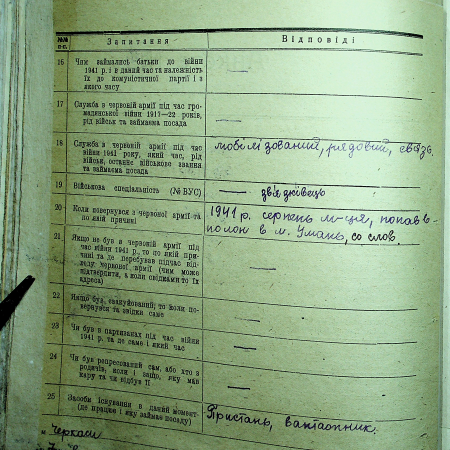 №№ пп. Запитання Відповіді
16 Чим займались батьки до війни
1941 р. і в даний час та належність
їх до комуністичної партії і з
якого часу —
17 Служба в червоній армії під час гро-
мадянської війни 1917—22 років,
рід військ та займаєма посада —
18 Служба в червоній армії під час
війни 1941 року, який час, рід
військ, останнє військове звання
та займаєма посада
мобілізований, рядовий, связь
19 Військова спеціальність (№ ВУС) — звязківець
20 Коли повернувся з червоної армії та
по якій причині
1941 р. серпень м-ця, попав в-
полон в м. Умань, со слов.
21 Якщо не був в червоній армії під
час війни 1941 р., то по якій при-
чині та де перебував підчас від-
ходу червоної армії (чим може
підтвердити, а коли свідками то їх
адреса) —
22 Якщо був евакуйований, то коли по-
вернувся та звідки саме —
23 Чи був в партизанах під час війни
1941 р. та де саме і який час —
24 Чи був репресований сам, або хто з
родичів, коли і защо, яку мав
кару та чи відбув її —
25 Засоби існування в даний момент
(де працює і яку займає посаду)
Пристань, вантаопник.
Черкаси